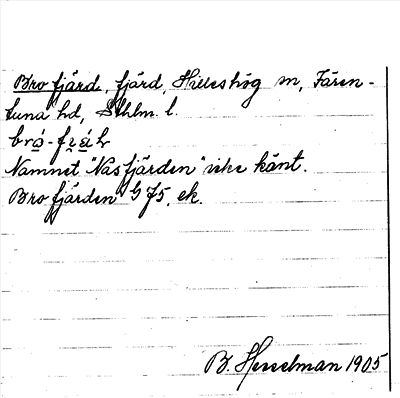 Brofjärd, fjärd, Hilleshög sn, Fären-
tuna hd, Sthlm. l.
Namnet "Nasfjärden" icke känt.
Brofjärden" G 75, ek.
B. Hesselman 1905